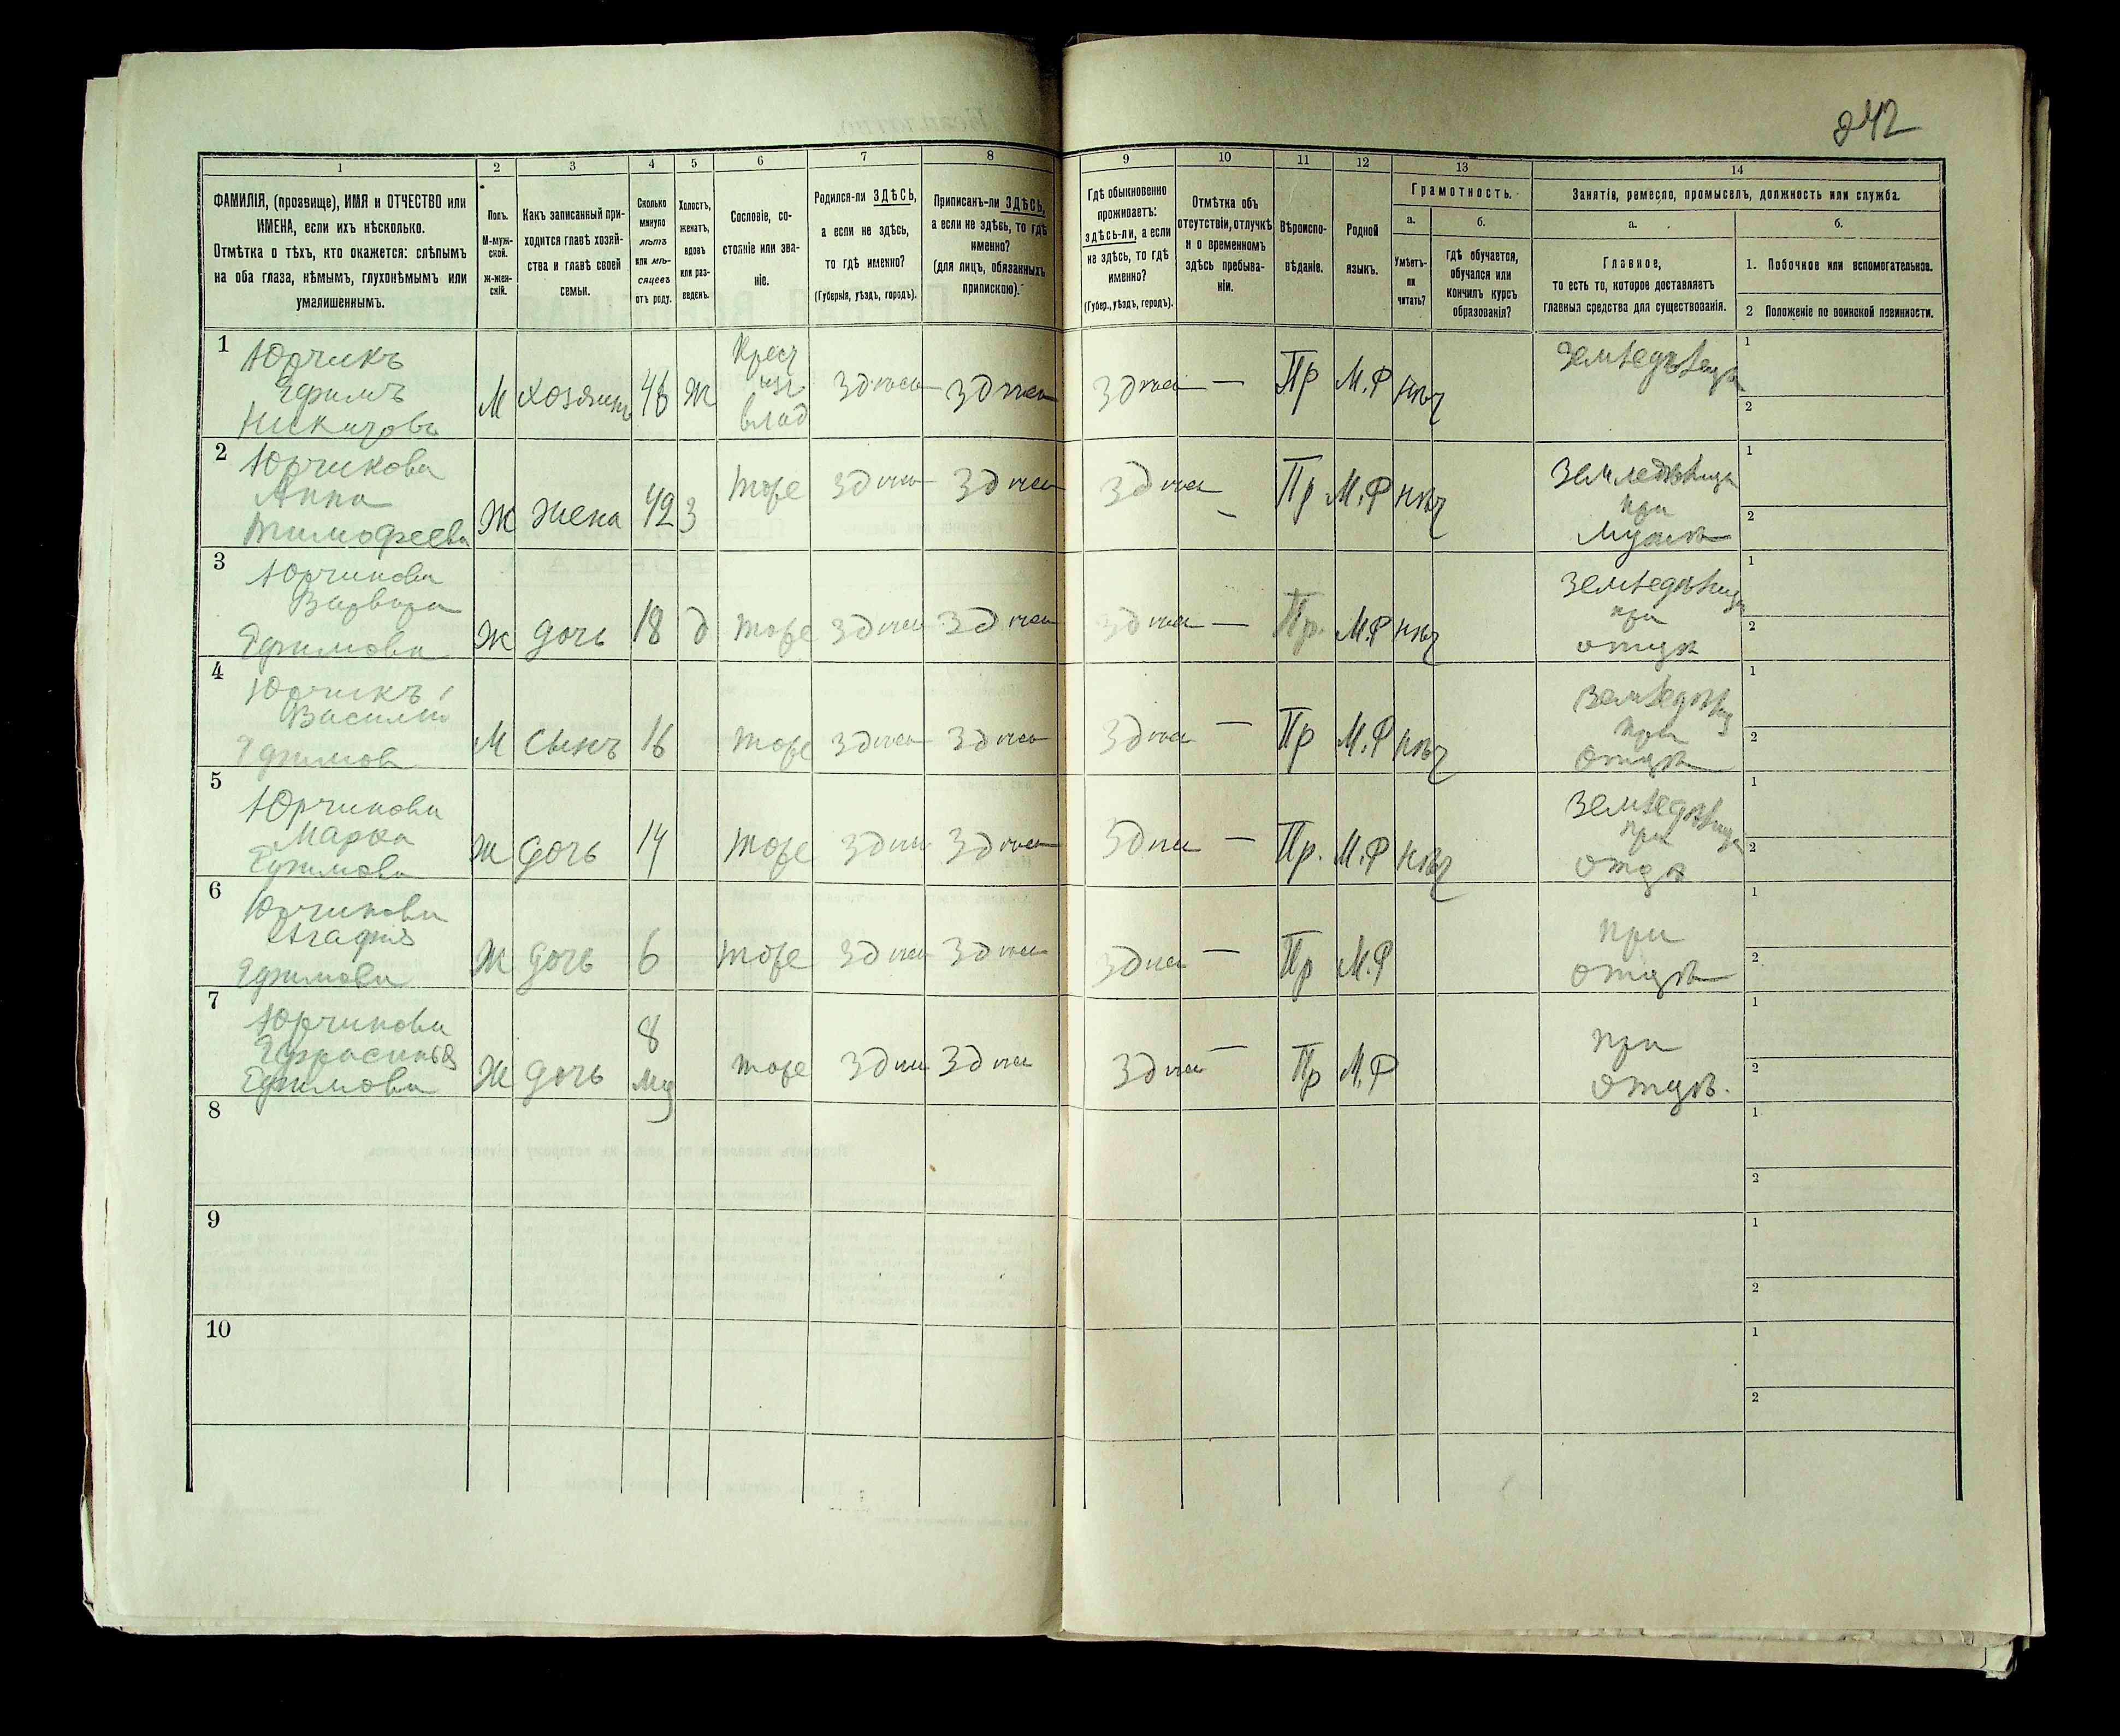 242
1
2
3
4
5
6
7
8
9
10
11
12
13
14
ФАМИЛІЯ, (прозвище), ИМЯ и ОТЧЕСТВО или
ИМЕНА, если ихъ нѣсколько.
Отмѣтка о тѣхъ, кто окажется: слѣпымъ
на оба глаза, нѣмымъ, глухонѣмымъ или
умалишеннымъ.
Полъ.
М-муж-
ской.
Ж-жен-
скій.
Какъ записанный при-
ходится главѣ хозяй-
ства и главѣ своей
семьи.
Сколько
минуло
лѣтъ
или мѣ-
сяцевъ
отъ роду.
Холостъ,
женатъ,
вдовъ
или раз-
веденъ.
Сословіе, со-
стояніе или зва-
ніе.
Родился-ли ЗДѢСЬ,
а если не здѣсь,
то гдѣ именно?
(Губернія, уѣздъ, городъ).
Приписанъ-ли ЗДѢСЬ,
а если не здѣсь, то гдѣ
именно?
(для лицъ, обязанныхъ
припискою).
Гдѣ обыкновенно
проживаетъ:
здѣсь-ли, а если
не здѣсь, то гдѣ
именно?
(Губер., уѣздъ, городъ).
Отмѣтка объ
отсутствіи, отлучкѣ
и о временномъ
здѣсь пребыва-
ніи.
Вѣроиспо-
вѣданіе.
Родной
языкъ.
Грамотность.
а.
Умѣетъ-
ли
читать?
б.
Гдѣ обучается,
обучался или
кончилъ курсъ
образованія?
Занятія, ремесло, промыселъ, должность или служба.
а.
Главное,
то есть то, которое доставляетъ
главныя средства для существованія.
б.
1. Побочное или вспомогательное.
2 Положеніе по воинской повинности.
1
Юрчикъ
Ефимъ
Никитовъ
М хозяинъ 46 Ж
Крест
изъ
влад
здеся здеся здеся — Пр М.Р нѣт
1
2
2
Юрчикова
Анна
Тимофеева
Ж жена 42 З тоже здеся здеся здеся — Пр М.Р нѣт
при
мужѣ
1
2
3
Юрчикова
Варвара
Ефимова
Ж дочь 18 д тоже здеся здеся здеся — Пр. М.Р нѣт
при
отцѣ
1
2
4
Юрчикъ
Василий
Ефимов
М сынъ 16 тоже здеся здеся здеся — Пр М.Р нѣт
при
отцѣ
1
2
5
Юрчикова
Ефимова
Ж дочь 14 тоже здеся здеся здеся — Пр. М.Р нѣт
при
отцѣ
1
2
6
Юрчикова
Агафия
Ефимова
Ж дочь 6 тоже здеся здеся здеся — Пр М.Р
при
отцѣ
1
2
7
Юрчикова
Ефросинья
Ефимова
Ж дочь 8 мц тоже здеся здеся здеся — Пр М.Р
при
отцѣ.
1
2
8
1
2
9
1
2
10
1
2